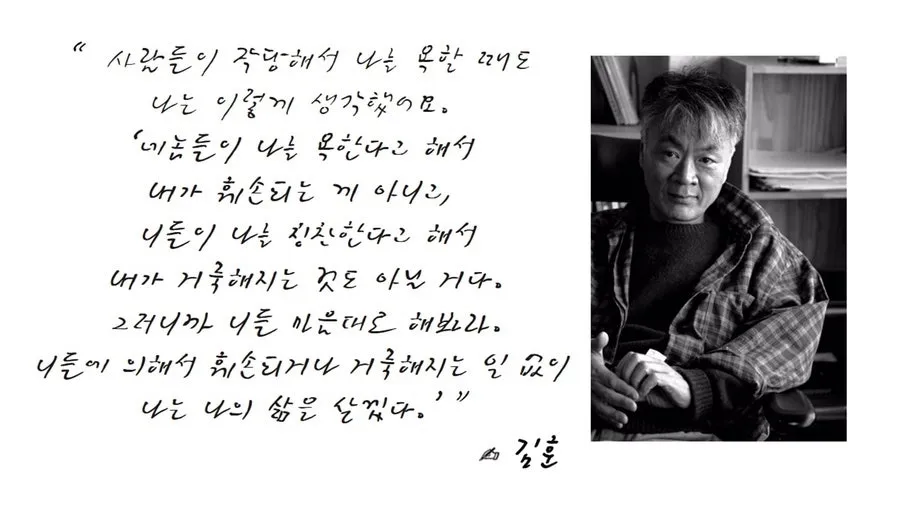 “ 사람들이 작당해서 나를 욕할 때도
나는 이렇게 생각했어요.
‘네놈들이 나를 욕한다고 해서
내가 훼손되는 게 아니고,
니들이 나를 칭찬한다고 해서
내가 거룩해지는 것도 아닐 거다.
그러니까 니들 마음대로 해봐라.
니들에 의해서 훼손되거나 거룩해지는 일 없이
나는 나의 삶을 살겠다.’”
김훈